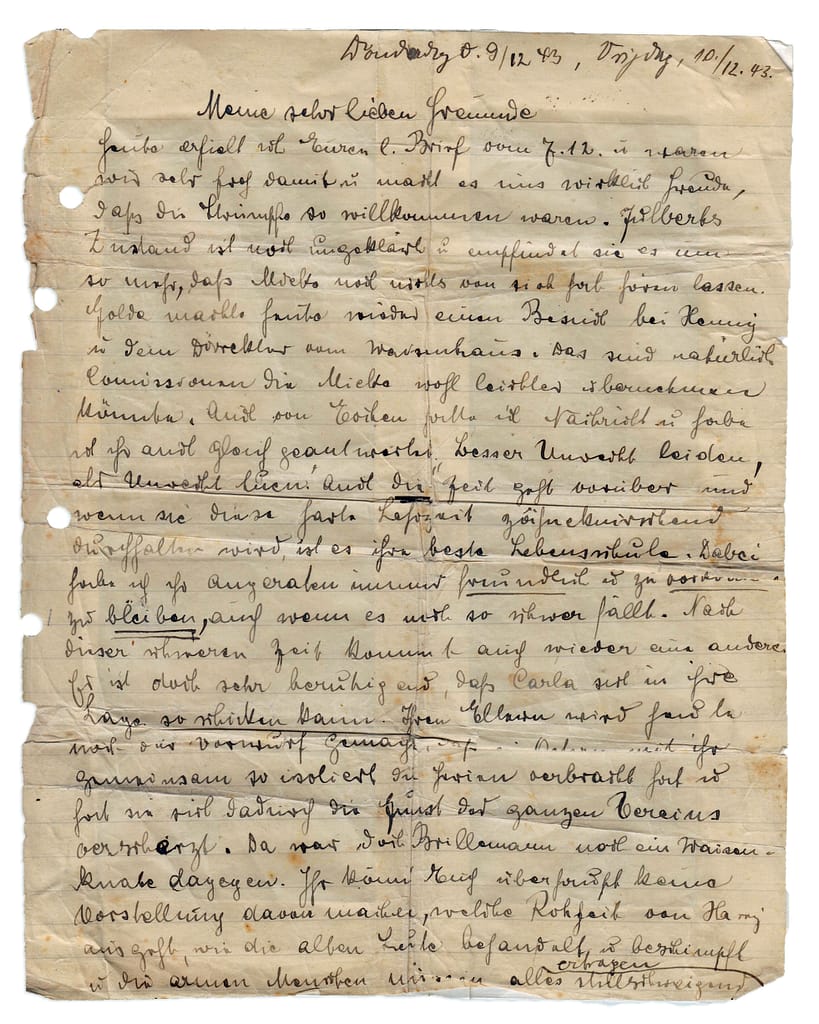 Donderdag d. 9/12 43, Vrijdag, 10./12.43.
Meine sehr lieben Freunde
Heute erhielt ich Euren l. Brief vom 7.12. u waren
wir sehr froh damit u macht es uns wirklich Freude,
daß die Strümpfe so willkommen waren.
Zustand ist noch ungeklärt u empfindet sie es um
so mehr, daß Mieke noch nichts von sich hat hören lassen.
Golda machte heute wieder einen Besuch bei Henny
u dem Direktor vom Waisenhaus. Das sind natürlich
Comissionen die Mieke wohl leichter übernehmen
könnte. Auch von hatte ich Nachricht u habe
ich ihr auch gleich geantwortet. Besser Unrecht leiden,
als Unrecht tuen! Auch die Zeit geht vorüber und
wenn sie diese harte zähneknirschend
durchhalten wird, ist es ihre beste Lebensschule. Dabei
habe ich ihr angeraten immer freundlich u zu
zu bleiben, auch wenn es noch so schwer fällt. Nach
dieser schweren Zeit kommt auch wieder eine andere.
Es ist doch sehr beruhigend, daß Carla sich in ihre
Lage so schicken kann. Ihren Eltern wird heute
noch der Vorwurf gemacht, daß mit ihr
gemeinsam so isoliert die Ferien verbracht hat u
hat sie sich dadurch die Gunst des ganzen Vereins
verscherzt. Da war doch Brillemann noch ein Waisen-
knabe dagegen. Ihr könnt Euch überhaupt keine
Vorstellung davon machen, welche Rohheit von
ausgeht, wie die alten Leute behandelt u beschimpft
ertragen
u die armen Menschen müssen alles stillschweigend